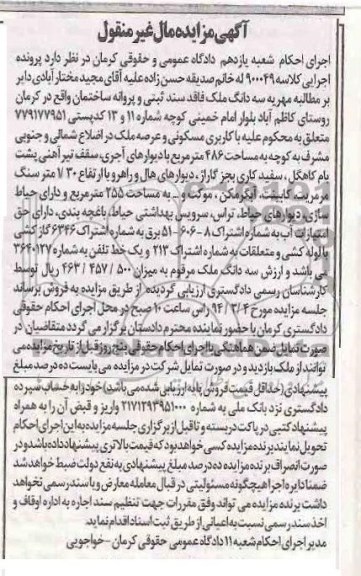 آگهی مزایده مال غیر منقول
اجرای احکام شعبه یازدهم دادگاه عمومی و حقوقی کرمان در نظر دارد پرونده
اجرایی کلاسه ۹۰۰۰۴۹ له خانم صدیقه حسن زاده علیه آقای مجید مختارآبادی دایر
بر مطالبه مهریه سه دانگ ملک فاقد سند ثبتی و پروانه ساختمان واقع در کرمان
روستای کاظم آباد بلوار امام خمینی کوچه شماره ۱۱ و ۱۳ کدپستی ۷۷۹۱۷۷۹۵۱
متعلق به محکوم علیه با کاربری مسکونی و عرصه ملک در اضلاع شمالی و جنوبی
مشرف به کوچه به مساحت ۴۸۶ متر مربع با دیوارهای آجری، سقف تیر آهنی پشت
بام کاهگل، سفید کاری بجز گاراژ، دیوارهای هال و راهرو با ارتفاع ۷/۳۰ متر سنگ
مرمریت، کابینت، آبگرمکن، موکت و... به مساحت ۲۵۵ متر مربع و دارای حیاط
سازی، دیوارهای حیاط، تراس، سرویس بهداشتی حیاط، باغچه بندی، دارای حق
امتیازات آب به شماره اشتراک ۸-۶۰۶-۵۱ برق به شماره اشتراک ۶۳۴۶ گاز کشی
با لوله کشی و متعلقات به شماره اشتراک ۲۱۳ و یک خط تلفن به شماره ۳۶۴۰۱۲۷
می باشد و ارزش سه دانگ ملک مرقوم به میزان ۵۰۰/۴۵۷/۴۶۳ ریال توسط
کارشناسان رسمی دادگستری ارزیابی گردیده از طریق مزایده به فروش برساند
جلسه مزایده مورخ ۹۴/۳/۴ راس ساعت ۱۰ صبح در محل اجرای احکام حقوقی
دادگستری کرمان با حضور نماینده محترم دادستان برگزار می گردد متقاضیان در
صورت تمایل ضمن هماهنگی با اجرای احکام حقوقی پنج روز قبل از تاریخ مزایده می
توانند از ملک بازدید و در صورت تمایل شرکت در مزایده می بایست ده درصد مبلغ
پیشنهادی (حداقل قیمت فروش پایه ارزیابی شده می باشد) خود را به حساب سپرده
دادگستری نزد بانک ملی به شماره ۲۱۷۱۲۹۳۹۵۱۰۰۰ واریز و قبض آن را به همراه
پیشنهاد کتبی در پاکت دربسته و تا قبل از برگزاری جلسه مزایده به این اجرای احکام
تحویل نمایند برنده مزایده کسی خواهد بود که قیمت بالاتری پیشنهاد داده باشد و در
صورت انصراف برنده مزایده ده درصد مبلغ پیشنهادی به نفع دولت ضبط خواهد شد
ضمنا دایره اجرا هیچگونه مسئولیتی در قبال معامله معارض و یا سند رسمی نخواهد
داشت برنده مزایده می تواند وفق مقررات جهت تنظیم سند اجاره به اداره اوقاف و
اخذ سند رسمی نسبت به اعیانی از طریق ثبت اسناد اقدام نماید.
مدیر اجرای احکام شعبه ۱۱ دادگاه عمومی حقوقی کرمان - خواجویی